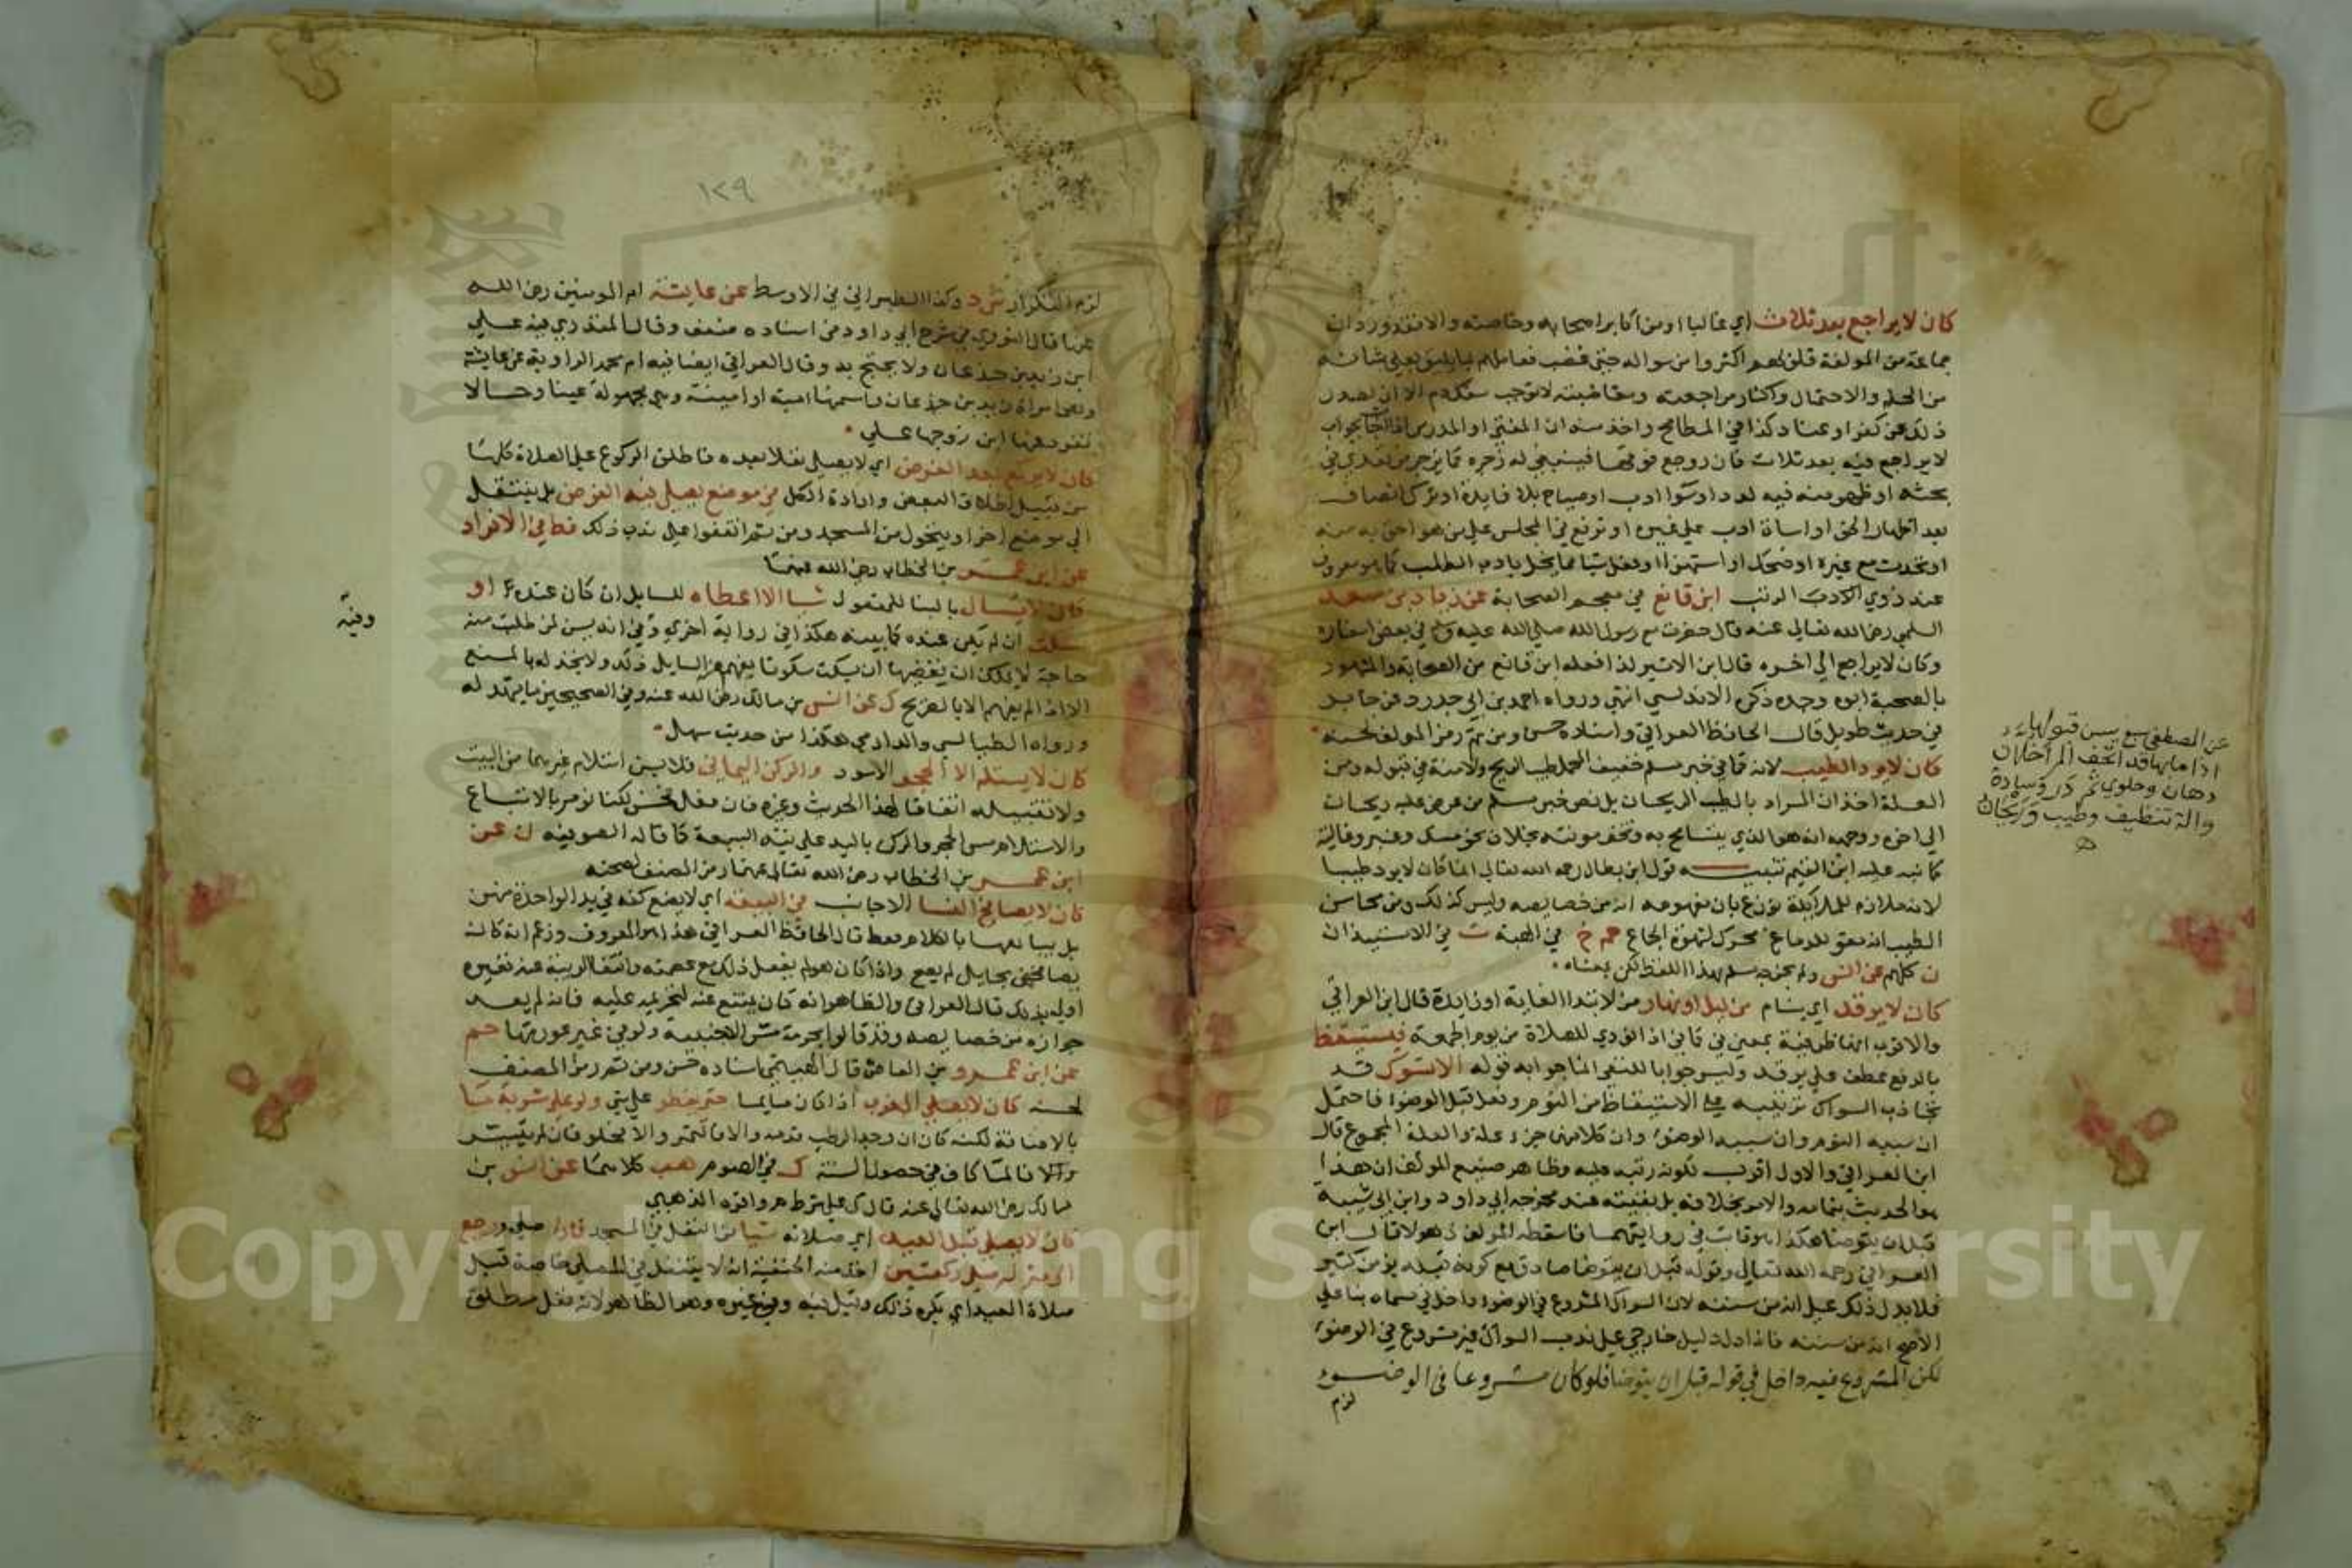 كان لا يراجع بعد ثلاث اي غالبا او من اكابر اصحابه وخاصته والا فقد ورد ان
جماعة من المولفة قلوبهم اكثروا من سواله حتى غضب فعاملهم بما يليق بعلي شانه
من الحلم والاحتمال واكثار مراجعته لا توجب الا ان
ذلك عن كفر او عناد كذا في المطامح واخذ منه ان المفتي او المدرس اذا اجاب بجواب
لا يراجع فيه بعد ثلاث فان روجع فوقها فينبغي له زجره كما يزجر من تعدى في
بحثه او ظهر منه فيه لدد او سوا ادب او صياح بلا فايدة او ترك انصاف
بعد اظهار الحق او اساة ادب على غيره او ترفع في المجلس على من هو احق به منه
او تحدث مع غيره او ضحك او استهزا او فعل شيا مما يخل بادب الطلب كما هو معروف
عند ذوي الادب الرتب ابن قانع في معجم الصحابة عن زياد بن سعد
السلمي رضي الله تعالى عنه قال حضرت مع رسول الله صلى الله عليه وسلم في بعض اسفاره
وكان لا يراجع الى اخره قال ابن الاثير كذا فعله ابن قانع من الصحابة والمشهور
بالصحبة ابوه وجده ذكره الاندلسي انتهى ورواه احمد بن ابي حدرد عن جابر
في حديث طويل قال الحافظ العراقي واسناده حسن ومن ثم رمز المولف لحسنه
كان لا يرد الطيب لانه كما في خبر مسلم خفيف المحمل طيب الريح ولا منة في قبوله ومن
العلة اخذ ان المراد بالطيب الريحان بل نص خبر مسلم من عرض عليه ريحان
الى اخره ووجهه انه هو الذي يتسامح به وتخف مونته بخلاف نحو مسك وعنبر وغالية
كما نبه عليه ابن القيم تنبيه قول ابن بطال رحمه الله تعالى انما كان لا يرد طيبا
لانه ملازم للملايكة نوزع بان مفهومه انه من خصايصه وليس كذلك ومن محاسن
الطيب انه مقو للدماغ محرك لشهوة الجماع حم خ في الهبة ت في الاستيذان
ن كلهم عن انس ولم يخرجه مسلم بهذا اللفظ لكن بمعناه
كان لا يرقد اي ينام من ليل او نهار من لابتدا الغاية او زايدة قال ابن العراقي
والاقرب انها ظرفية بمعنى في كما في اذا نودي للصلاة من يوم الجمعة فيستيقظ
بالرفع عطف على يرقد وليس جوابا للنفي انما جوابه قوله الا تسوك قد
تجاذب السواك ترتيبه على الاستيقاظ من النوم وفعله قبل الوضوء فاحتمل
ان سببه النوم وان سببه الوضوء وان كلا منهما جزء علة والعلة المجموع قال
ابن العراقي والاول اقرب لكونه رتبه عليه وظاهر صنيع المولف ان هذا
هو الحديث بتمامه والامر بخلافه بل بقيته عند مخرجه ابي داود وابن ابي شيبة
قبل ان يتوضا هكذا هو ثابت في روايتهما فاسقطه المولف ذهولا قال ابن
العراقي رحمه الله تعالى وقوله قبل ان يتوضا صادق مع كونه قبله بزمن كثير
فلا يدل ذلك على انه من سننه لان السواك المشروع في الوضوء داخل في مسماه بنا على
الاصح انه من سننه فاذا دل دليل خارجي على ندب السواك فيه مشروع في الوضوء
لكن المشروع فيه داخل في قوله قبل ان يتوضا فلو كان مشروعا في الوضوء
لزم
عن المصطفى سبع يسن قبولها
اذا ما بها قد اتحف المرء خلان
دهان وحلوى ثم در وسادة
والة تنظيف وطيب وريحان
١٢٩
لزم التكرار ش د وكذا الطبراني في الاوسط عن عايشة ام المومنين رضي الله
عنها قال النووي في شرح ابي داود في اسناده ضعف وقال المنذري فيه علي
ابن زيد بن جدعان ولا يحتج به وقال العراقي ايضا فيه ام محمد الراوية عن عايشة
وهي امراة زيد بن جدعان واسمها امية او امينة وهي مجهولة عينا وحالا
تفرد عنها ابن زوجها علي
كان لا يركع بعد الفرض اي لا يصلي نفلا بعده فاطلق الركوع على الصلاة كلها
من قبيل اطلاق البعض وارادة الكل في موضع يصلي فيه الفرض بل ينتقل
الى موضع اخر او يتحول من المسجد ومن ثم اتفقوا على ندب ذلك قط في الافراد
عن ابن عمر بن الخطاب رضي الله عنهما
كان لا يسال بالبنا للمفعول شيا الا اعطاه للسايل ان كان عنده او
سكت ان لم يكن عنده كما بينه هكذا في رواية اخرى وفي انه يسن لمن طلب منه
حاجة لا يمكنه ان يقضيها ان يسكت سكوتا يفهم السايل ذلك ولا يخجله بالمنع
الا اذا لم يفهم الا بالتصريح ك عن انس بن مالك رضي الله عنه وفي الصحيحين ما يشهد له
ورواه الطيالسي والدارمي هكذا من حديث سهل
وفيه
كان لا يستلم الا الحجر الاسود والركن اليماني فلا يسن استلام غيرهما من البيت
ولا تقبيله اتفاقا لهذا الحديث وغيره فان فعل فحسن لكنا نومر بالاتباع
والاستلام مس الحجر والركن باليد على نية البيعة كما قاله الصوفية ن عن
ابن عمر بن الخطاب رضي الله تعالى عنهما رمز المصنف لصحته
كان لا يصافح النسا الاجانب في البيعة اي لا يضع كفه في يد الواحدة منهن
بل يبايعها بالكلام فقط قال الحافظ العراقي هذا هو المعروف وزعم انه كان
يصافحهن بحايل لم يصح واذا كان هو لم يفعل ذلك مع عصمته وانتفا الريبة عنه فغيره
اولى بذلك قال العراقي والظاهر انه كان يمتنع عنه لتحريمه عليه فانه لم يعد
جوازه من خصايصه وقد قالوا بحرمة مس الاجنبية ولو في غير عورتها حم
عن ابن عمرو بن العاص قال الهيتمي اسناده حسن ومن ثم رمز المصنف
لحسنه كان لا يصلي المغرب اذا كان صايما حتى يفطر على شي ولو على شربة ما
بالاضافة لكنه كان ان وجد الرطب قدمه والا فالتمر والا فحلو فان لم يتيسر
والا فالما كاف في حصول السنة ك في الصوم هب كلاهما عن انس بن
مالك رضي الله تعالى عنه قال ك على شرط م واقره الذهبي
كان لا يصلي قبل العيد اي صلاته شيا من النفل في المسجد فاذا صلى ورجع
الى منزله صلى ركعتين اخذ منه الحنفية انه لا يتنفل في المصلى خاصة قبل
صلاة العيد اي يكره ذلك وقيل فيه وفي غيره وهو الظاهر لانه نفل مطلق
Copyright © King Saud University